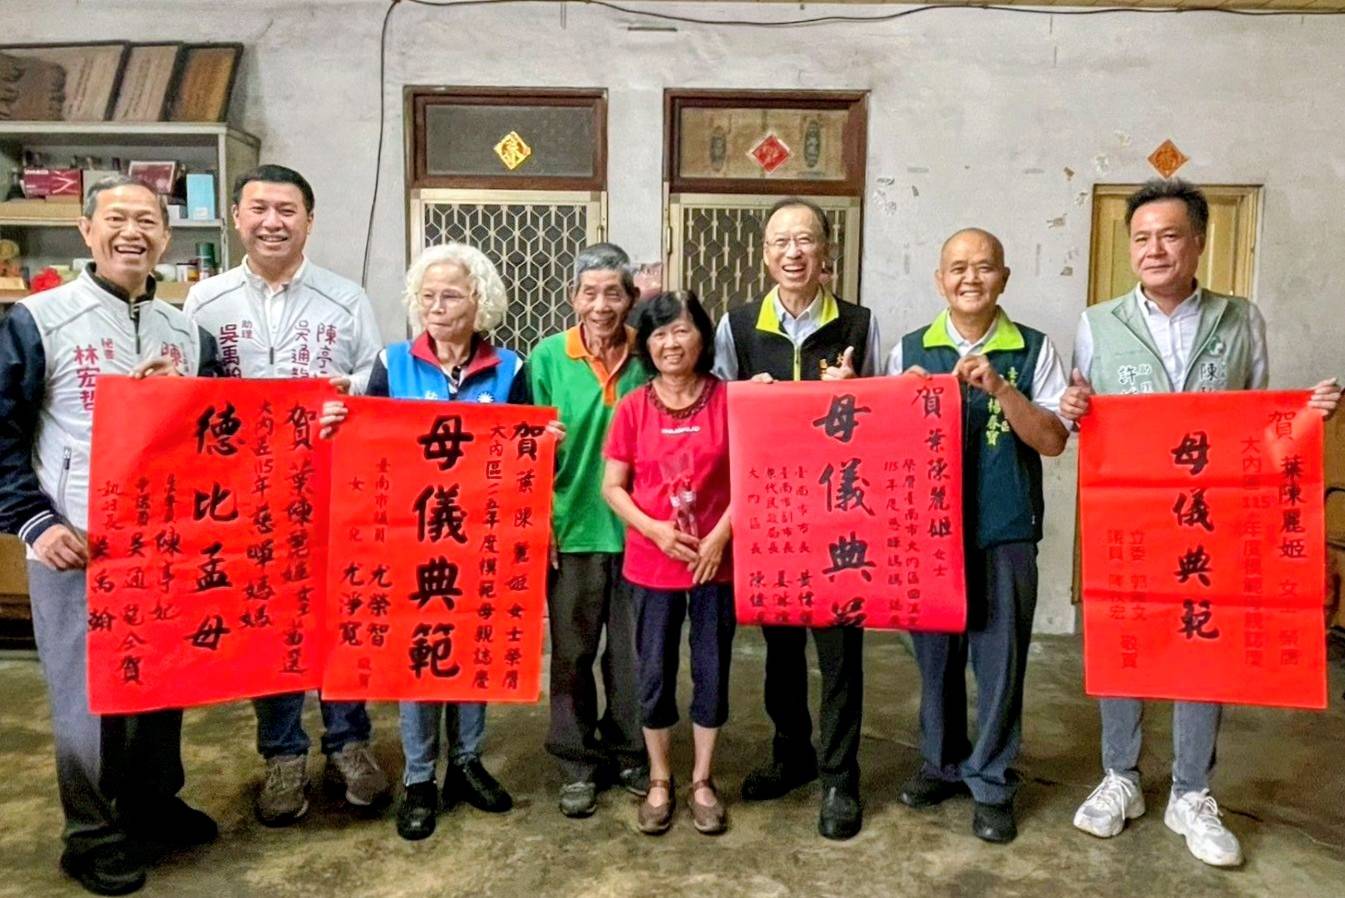 陳
秘書
林宏哲
陳亭
吳通龍
助理
吳禹
賀葉陳麗姬女士當選
大內區115年慈暉媽媽
德比孟母
立委陳亭妃
吳通龍仝賀
賀 葉陳麗姬女士榮膺
大內區一一五年度模範母親誌慶
母儀典範
臺南市議員 尤榮智
女兒 尤淨寬
敬賀
賀 葉陳麗姬 女士
榮膺臺南市大內區
115年度慈暉媽媽誌慶
母儀典範
臺南市市長 黃偉哲
臺南市副市長 姜淋煌
大內區長 陳
楊春寶
陳
助理
許
賀 葉陳麗姬 女士 榮膺
大內區115年度模範母親誌慶
母儀典範
立委 郭國文
議員 陳秋宏
敬賀